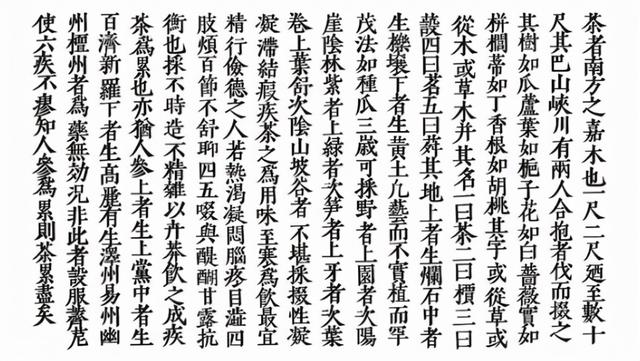 茶者南方之嘉木也一尺二尺廼至數十
尺其巴山峽川有兩人合抱者伐而掇之
其樹如瓜蘆葉如梔子花如白薔薇實如
栟櫚蒂如丁香根如胡桃其字或從草或
從木或草木并其名一曰茶二曰檟三曰
蔎四曰茗五曰荈其地上者生爛石中者
生櫟壤下者生黄土凡藝而不實植而罕
茂法如種瓜三歲可採野者上園者次陽
崖陰林紫者上緑者次笋者上牙者次葉
卷上葉舒次陰山坡谷者不堪採掇性凝
凝滯結瘕疾茶之爲用味至寒爲飲最宜
精行儉德之人若熱渴凝悶腦疼目澁四
肢煩百節不舒聊四五啜與醍醐甘露抗
衡也採不時造不精雜以卉莽飲之成疾
茶爲累也亦猶人參上者生上黨中者生
百濟新羅下者生高麗有生澤州易州幽
州檀州者爲藥無効況非此者設服薺苨
使六疾不瘳知人參爲累則茶累盡矣